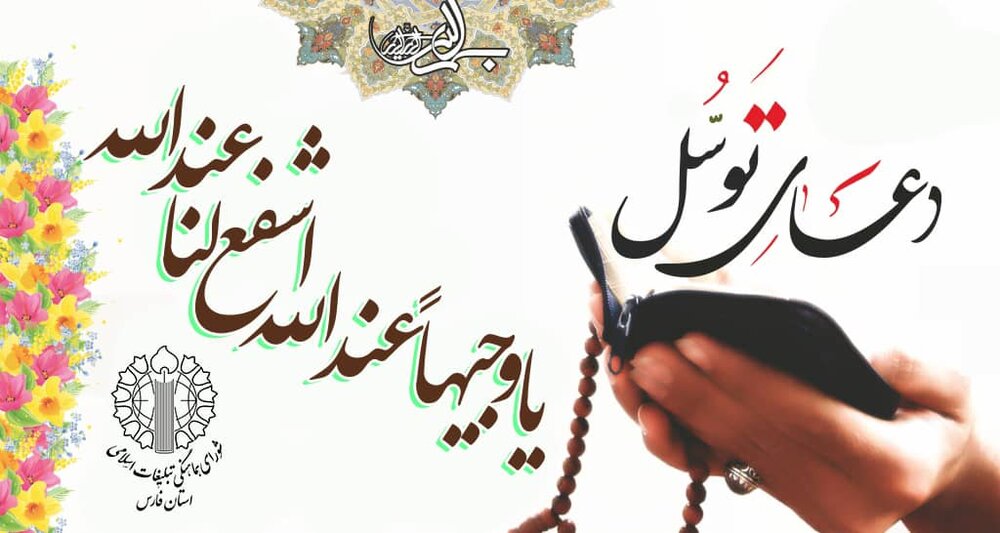 بسم الله الرحمن الرحیم
دعای توسُّل
یا وجیهاً عند الله اشفع لنا عند الله
شورای هماهنگی تبلیغات اسلامی
استان فارس